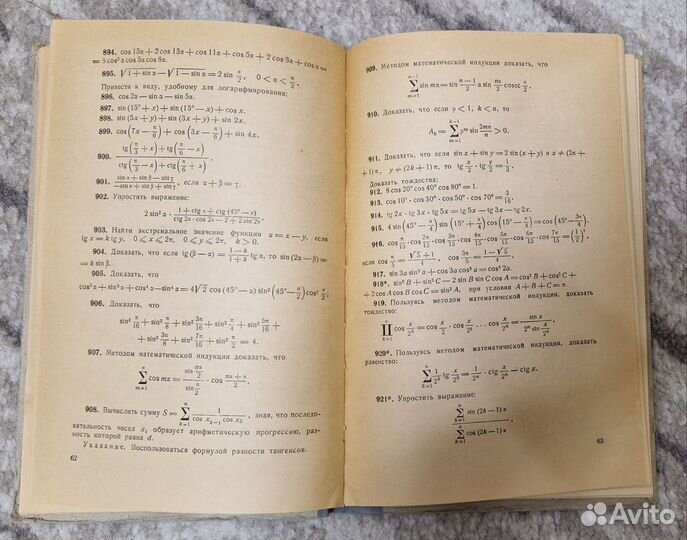 894. cos 15α + 2 cos 13α + cos 11α + cos 5α + 2 cos 3α + cos α =
= 8 cos² α cos 5α cos 8α.
895. √1 + sin α − √1 − sin α = 2 sin α/2, 0 < α < π/2.
Привести к виду, удобному для логарифмирования:
896. cos 2α − sin 5α.
897. sin (15° + x) + sin (15° − x) + cos x.
898. sin (5x + y) + sin (3x + y) + sin 2x.
899. cos(7x − π/6) + cos(3x − π/6) + sin 4x.
900. (tg(π/3 + x) + tg(π/6 − x)) / (ctg(π/3 − x) + ctg(π/6 + x)).
901. (sin α + sin β − sin γ) / (−sin α + sin β + sin γ), если α + β = γ.
902. Упростить выражение:
2 sin² α · (1 + ctg α + ctg (45° − α)) / (ctg 2α · cos 2α − 2 + 2 sin 2α).
903. Найти экстремальное значение функции u = x − y, если
tg x = k tg y, 0 ⩽ x ⩽ 2π, 0 ⩽ y ⩽ 2π, k > 0.
904. Доказать, что если tg (β − α) = (1 − k)/(1 + k) tg α, то sin (2α − β) =
= k sin β.
905. Доказать, что
cos² α + sin² α − cos α + sin α = 4√2 cos (45° − α) sin² (45° − α/2) cos² α/2.
906. Доказать, что
sin² π/16 + sin² π/8 + sin² 3π/16 + sin² π/4 + sin² 5π/16 +
+ sin² 3π/8 + sin² 7π/16 + sin² π/2 = 4.
907. Методом математической индукции доказать, что
∑ₘ₌₁ⁿ cos mα = (sin nα/2)/(sin α/2) · cos (nα + α)/2.
908. Вычислить сумму S = ∑ₖ₌₁ⁿ 1/(cos xₖ₋₁ cos xₖ), зная, что последо-
вательность чисел xᵢ образует арифметическую прогрессию, раз-
ность которой равна d.
Указание. Воспользоваться формулой разности тангенсов.
62
909. Методом математической индукции доказать, что
∑ₘ₌₁ⁿ⁻¹ sin mα = sin (n−1)/2 α sin nα/2 cosec α/2.
910. Доказать, что если p < 1, k < n, то
Aₖ = ∑ₘ₌₁ᵏ⁻¹ pᵐ sin 2mπ/n > 0.
911. Доказать, что если sin x + sin y = 2 sin (x + y) и x ≠ (2n +
+ 1) π, y ≠ (2k + 1) π, то tg x/2 · tg y/2 = 1/3.
Доказать тождества:
912. 8 cos 20° cos 40° cos 80° = 1.
913. cos 10° · cos 30° · cos 50° · cos 70° = 3/16.
914. tg 2x · tg 3x · tg 5x = tg 5x − tg 3x − tg 2x.
915. 4 sin(45° − α/4) sin(15° + α/4) cos(15° − α/4) = cos(45° − 3α/4).
916. cos π/15 cos 2π/15 cos 3π/15 cos 4π/15 cos 5π/15 cos 6π/15 cos 7π/15 = (1/2)⁷,
если cos π/5 = (√5 + 1)/4, cos 3π/5 = (1 − √5)/4.
917. sin 3α sin³ α + cos 3α cos³ α = cos³ 2α.
918*. sin² B + sin² C − 2 sin B sin C cos A = cos² B + cos² C +
+ 2 cos A cos B cos C = sin² A, при условии A + B + C = π.
919. Пользуясь методом математической индукции, доказать
тождество:
∏ₖ₌₁ⁿ cos x/2ᵏ = cos x/2 · cos x/2² ... cos x/2ⁿ = sin x/(2ⁿ sin x/2ⁿ).
920*. Пользуясь методом математической индукции, доказать
равенство:
∑ₖ₌₁ⁿ 1/2ᵏ tg x/2ᵏ = 1/2ⁿ · ctg x/2ⁿ − ctg x.
921*. Упростить выражение:
∑ₖ₌₁ⁿ sin (2k − 1) α / ∑ₖ₌₁ⁿ cos (2k − 1) α.
63
Avito